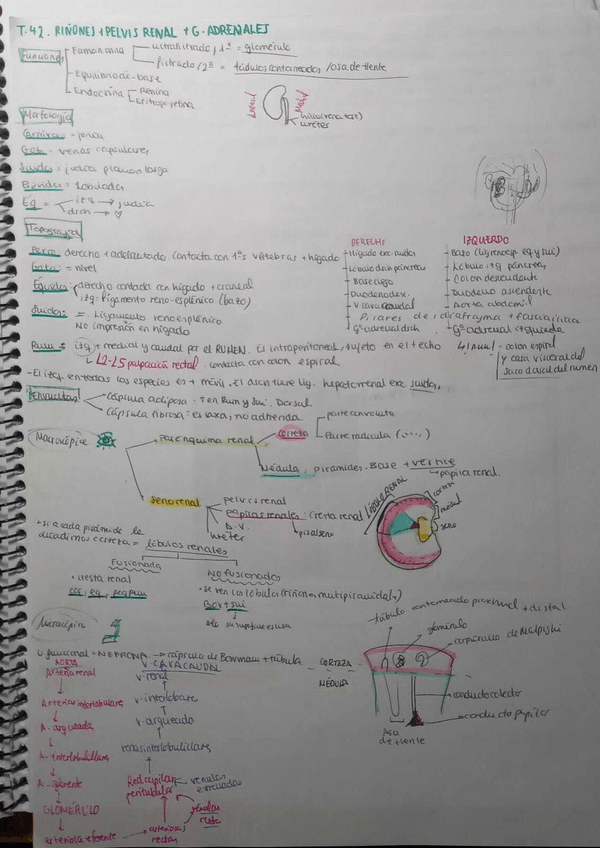 T.42. RIÑONES + PELVIS RENAL + G. ADRENALES
Funciones
ultrafiltrado, 1º = glomérulo
filtrado / 2º = túbulos contorneados / asa de Henle
Equilibrio ac-base
Endocrina
Renina
Eritropoyetina
Lateral
Medial
uréter
Morfología
Carnívo - judía
Gato - venas capsulares
Suidos = judía plana + larga
Bóvidos = Lobulados
Eq = izq → judía
drch → ♡
Topografía
DERECHO
IZQUIERDO
Perro derecho + adelantado. Contacta con 1ªs vértebras + hígado
Gato = nivel
Équidos: derecho contacta con hígado + craneal
izq: ligamento reno-esplénico (bazo)
Suidos: = Ligamento renoesplénico
No impresión en hígado
Rum: izq + medial y caudal por el RUMEN. Es intraperitoneal, sujeto en el techo
L2-L5 palpación rectal. contacta con colon espiral
Hígado exc. suidos
Lóbulo dcho páncreas
Base ciego
Duodeno dex.
V. cava caudal
Pilares de diafragma + fascia ilíaca
Gº adrenal dch
Bazo (lig renoesp eq y sui)
Lóbulo izq páncreas
Colon descendente
Duodeno ascendente
Aorta abdominal
Gº adrenal izquierda
colon espiral
y cara visceral del
saco dorsal del rumen
- El izq. en todas las especies es + móvil. El dch tiene lig. hepatorrenal exc suidos
Envueltas
Cápsula adiposa - ↑ en Rum y Sui. Dorsal
Cápsula fibrosa = es laxa, no adherida
Macroscópico
Parénquima renal
Corteza
parte convoluta
Parte radiada
Médula, pirámides. Base + vértice
papila renal.
Seno renal
pelvis renal
papilas renales: Cresta renal
B.V.
Uréter
LÓBULO RENAL
corteza
médula
seno
- si a cada pirámide le
añadimos corteza = Lóbulos renales
Fusionados
cresta renal
No fusionados
se ven los lóbulos (riñones multipiramidales)
Bov + sui
Microscópico
U. funcional = NEFRONA → cápsula de Bowman + túbulo
CORTEZA
MÉDULA
túbulo contorneado proximal + distal
glomérulo
corpúsculo de Malpighi
conducto colector
conducto papilar
Asa
de Henle
AORTA
Arteria renal
Arterias interlobulares
A. arqueada
A. interlobulillares
A. aferente
GLOMÉRULO
arteriola eferente
arteriolas
rectas
vénulas
rectas
Red capilar
peritubular
vénulas
estrelladas
venas interlobulillares
v. arqueada
v. interlobar
v. renal
V. CAVA CAUDAL